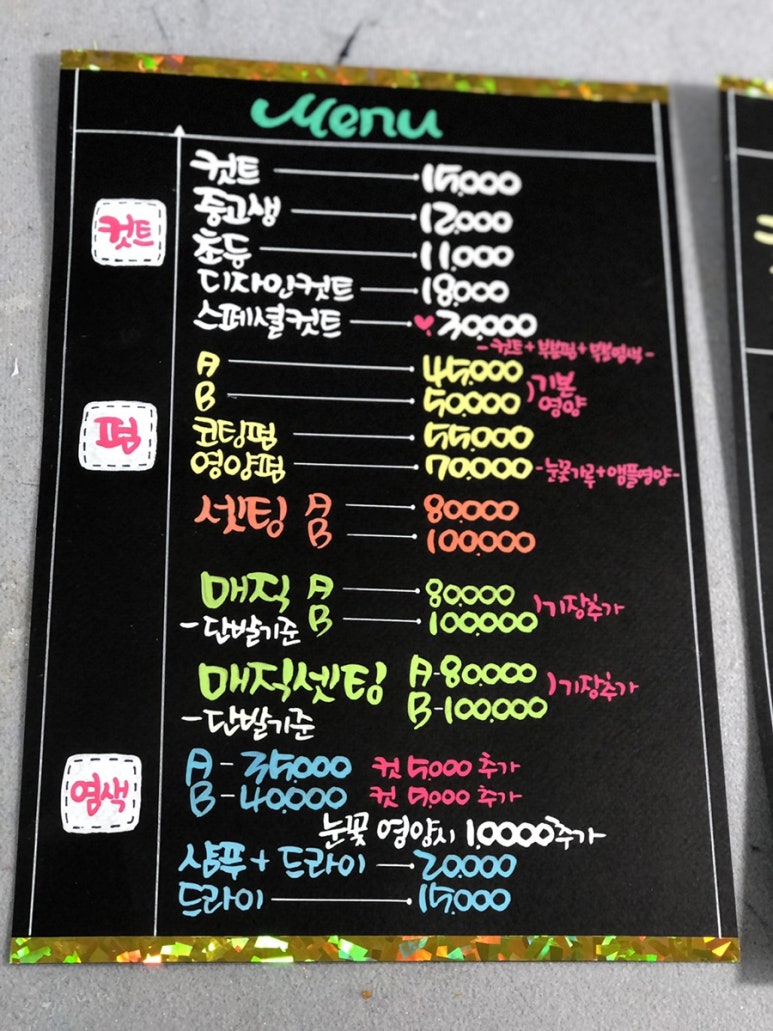 Menu
컷트
컷트 15,000
중고생 12,000
초등 11,000
디자인컷트 18,000
스페셜컷트 ♥30,000
-컷트+부분펌+부분염색-
펌
A 45,000
B 50,000
)기본
영양
코팅펌 55,000
영양펌 70,000 -눈꽃가루+앰플영양-
셋팅 A 80,000
B 100,000
매직 A 80,000
-단발기준 B 100,000
)기장추가
매직셋팅 A-80,000
B-100,000
)기장추가
-단발기준
염색
A-35,000 컷 5,000 추가
B-40,000 컷 5,000 추가
눈꽃 영양시 10,000추가
샴푸+드라이 20,000
드라이 15,000